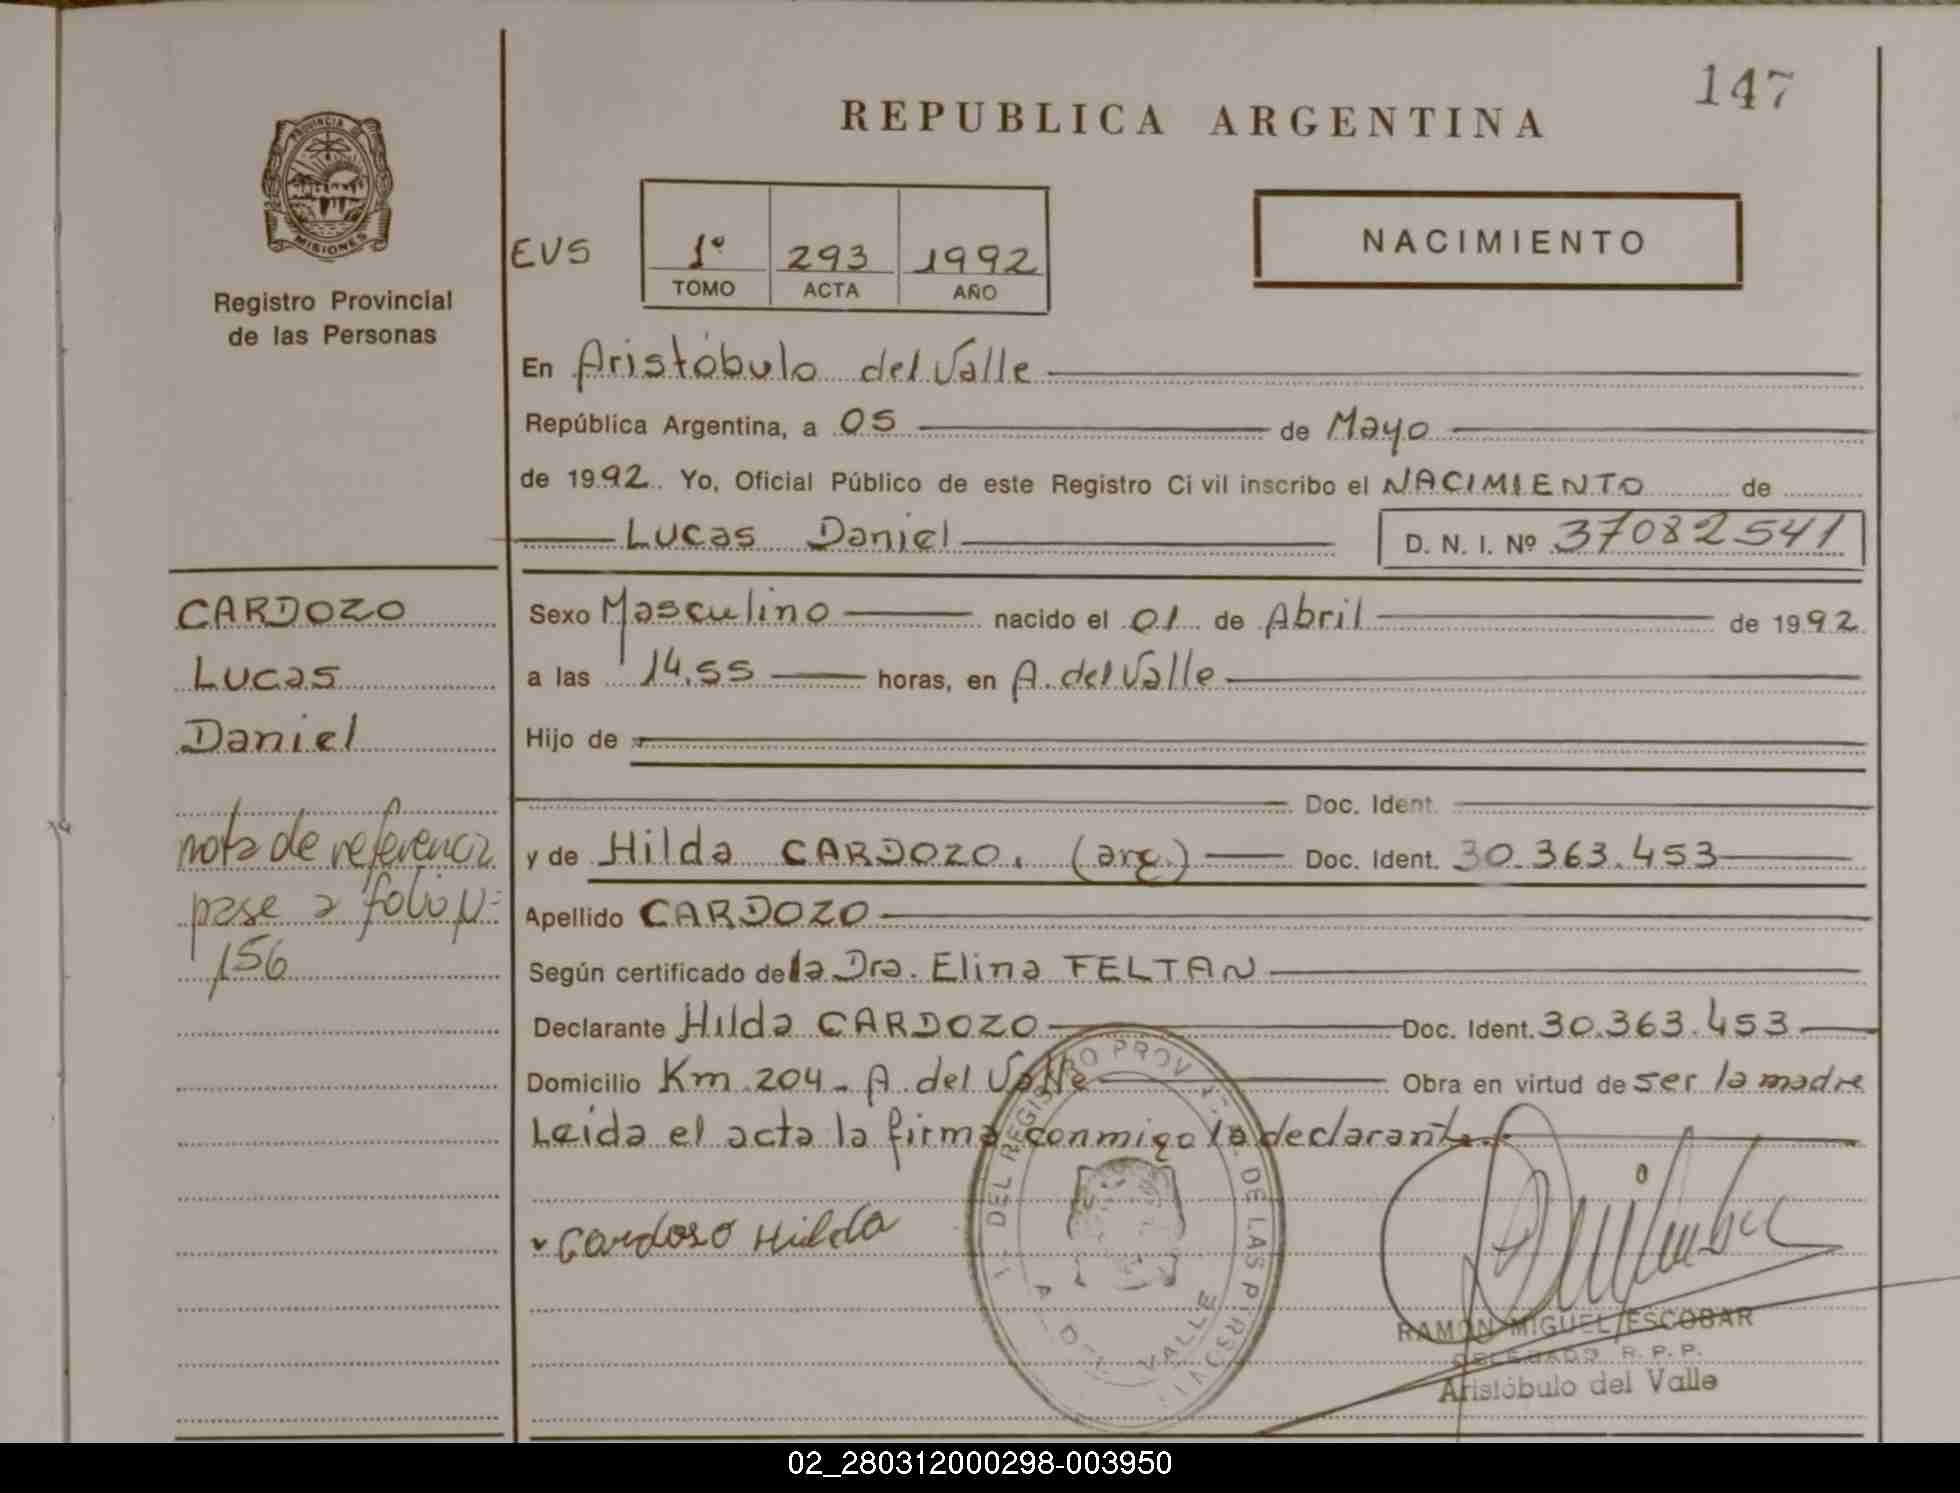 147
REPUBLICA ARGENTINA
PROVINCIA DE
MISIONES
Registro Provincial
de las Personas
EVS
1º 293 1992
TOMO ACTA AÑO
NACIMIENTO
En Aristóbulo del Valle
República Argentina, a 05 de Mayo
de 1992. Yo, Oficial Público de este Registro Civil inscribo el NACIMIENTO de
Lucas Daniel D. N. I. Nº 37082541
CARDOZO
Lucas
Daniel
nota de referencia
pase a folio Nº
156
Sexo Masculino nacido el 01 de Abril de 1992
a las 14,55 horas, en A. del Valle
Hijo de
Doc. Ident.
y de Hilda CARDOZO. (arg.) Doc. Ident. 30.363.453
Apellido CARDOZO
Según certificado de la Dra. Elina FELTAN
Declarante Hilda CARDOZO Doc. Ident. 30.363.453
Domicilio Km 204 - A. del Valle Obra en virtud de ser la madre
Leida el acta la firma conmigo la declarante
Cardoso Hilda
DEL REGISTRO PROV DE LAS PERS
A. DEL VALLE
RAMON MIGUEL ESCOBAR
DELEGADO R. P. P.
Aristóbulo del Valle
02_280312000298-003950